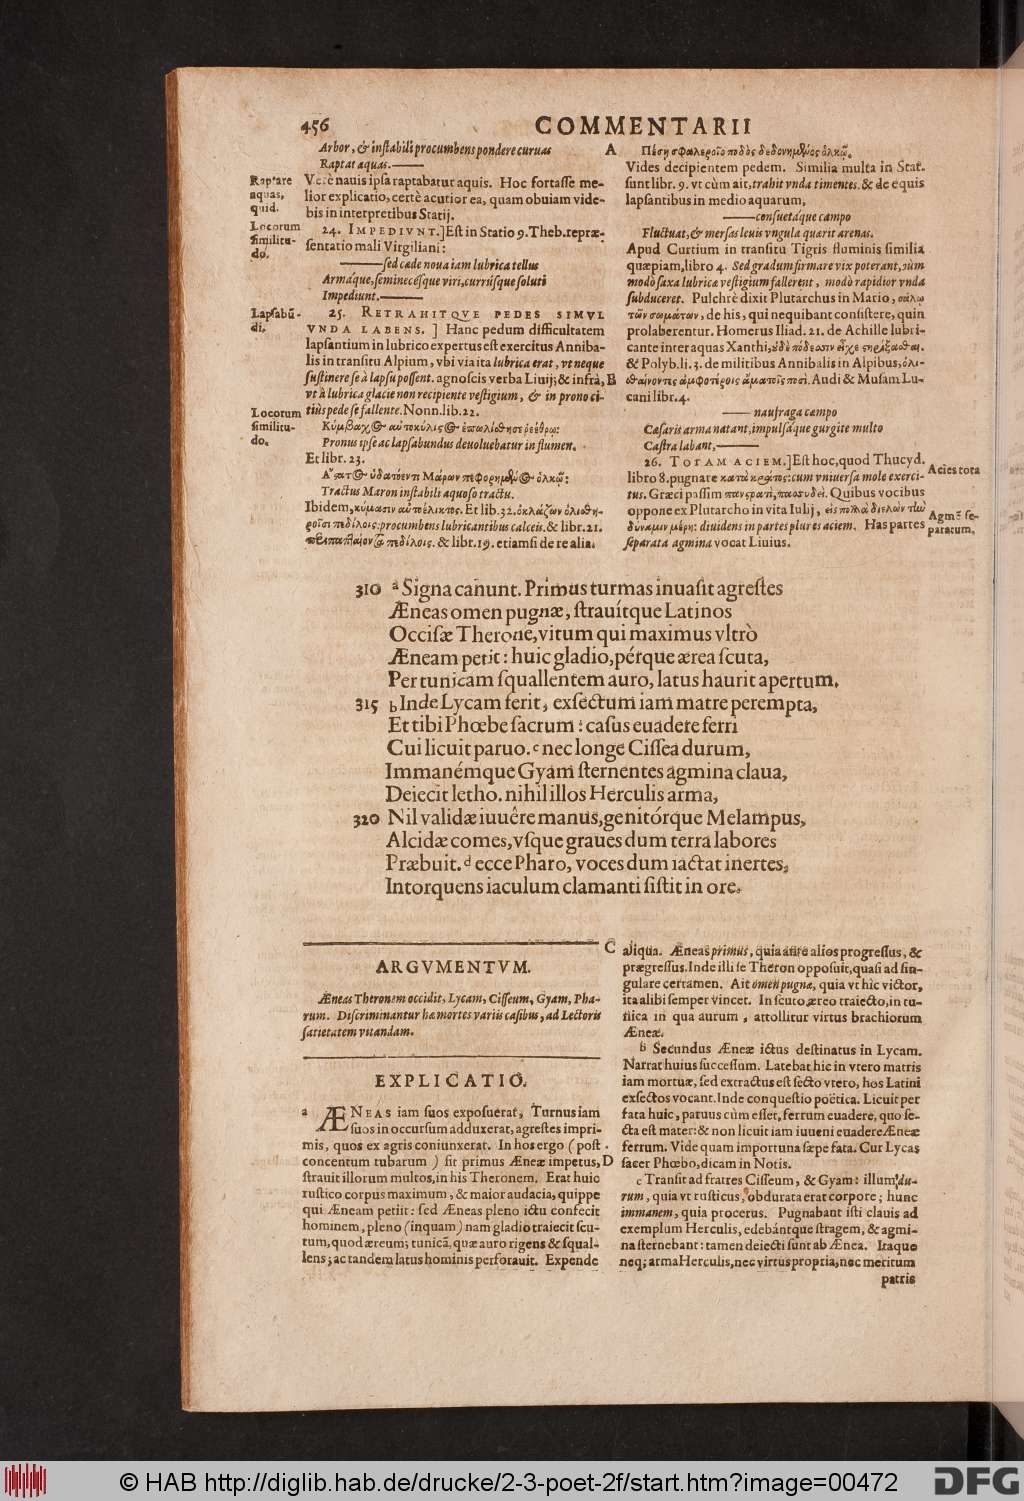 456
COMMENTARII
Arbor, & instabili procumbens pondere curuas
Raptat aquas.——
Verè nauis ipsa raptabatur aquis. Hoc fortasse me-
lior explicatio, certè acutior ea, quam obuiam vide-
bis in interpretibus Statij.
24. IMPEDIVNT.] Est in Statio 9. Theb. repræ-
sentatio mali Virgiliani:
——sed cæde noua iam lubrica tellus
Armáque, seminecésque viri, currúsque soluti
Impediunt.——
25. RETRAHITQVE PEDES SIMVL
VNDA LABENS.] Hanc pedum difficultatem
lapsantium in lubrico expertus est exercitus Anniba-
lis in transitu Alpium, vbi via ita lubrica erat, vt neque
sustinere se à lapsu possent. agnoscis verba Liuij; & infrà,
vt à lubrica glacie non recipiente vestigium, & in prono ci-
tiùs pede se fallente. Nonn. lib. 22.
Pronus ipse ac lapsabundus deuoluebatur in flumen.
Et libr. 23.
Tractus Maron instabili aquoso tractu.
Ibidem, κύμασιν αὐτοέλικτος. Et lib. 32. ὀκλάζων ὀλισθη-
ροῖσι πεδίλοις: procumbens lubricantibus calceis. & libr. 21.
πεδίλοις. & libr. 19. etiamsi de re alia.
Raptare
aquas,
quid.
Locorum
similitu-
do.
Lapsabū-
di.
Locorum
similitu-
do.
A
B
Πέση σφαλεροῖο ποδὸς δεδονημένος ὁλκῷ.
Vides decipientem pedem. Similia multa in Stat.
sunt libr. 9. vt cùm ait, trahit vnda timentes. & de equis
lapsantibus in medio aquarum,
——consuetáque campo
Fluctuat, & mersas leuis vngula quærit arenas.
Apud Curtium in transitu Tigris fluminis similia
quæpiam, libro 4. Sed gradum firmare vix poterant, cùm
modò saxa lubrica vestigium fallerent, modò rapidior vnda
subduceret. Pulchrè dixit Plutarchus in Mario, σάλῳ
τῶν σωμάτων, de his, qui nequibant consistere, quin
prolaberentur. Homerus Iliad. 21. de Achille lubri-
cante inter aquas Xanthi, οὐδὲ πόδεσσιν εἶχε στηρίξασθαι.
& Polyb. li. 3. de militibus Annibalis in Alpibus, ὀλι-
σθαίνοντες ἀμφοτέροις ἅμα τοῖς ποσὶ. Audi & Musam Lu-
cani libr. 4.
——naufraga campo
Cæsaris arma natant, impulsáque gurgite multo
Castra labant,——
26. TOTAM ACIEM.] Est hoc, quod Thucyd.
libro 8. pugnare κατὰ κράτος: cum vniuersa mole exerci-
tus. Græci passim πανστρατὶ, πασσυδεί. Quibus vocibus
oppone ex Plutarcho in vita Iulij, εἰς πολλὰ διελὼν τὴν
δύναμιν μέρη: diuidens in partes plures aciem. Has partes
separata agmina vocat Liuius.
Acies tota
Agmē se-
paratum.
310 a Signa canunt. Primus turmas inuasit agrestes
Æneas omen pugnæ, strauítque Latinos
Occisæ Therone, virum qui maximus vltrò
Æneam petit: huic gladio, pérque ærea scuta,
Per tunicam squallentem auro, latus haurit apertum.
315 b Inde Lycam ferit, exsectum iam matre perempta,
Et tibi Phœbe sacrum: casus euadere ferri
Cui licuit paruo. c nec longe Cissea durum,
Immanémque Gyam sternentes agmina claua,
Deiecit letho. nihil illos Herculis arma,
320 Nil validæ iuuêre manus, genitórque Melampus,
Alcidæ comes, vsque graues dum terra labores
Præbuit. d ecce Pharo, voces dum iactat inertes,
Intorquens iaculum clamanti sistit in ore.
ARGVMENTVM.
Æneas Theronem occidit, Lycam, Cisseum, Gyam, Pha-
rum. Discriminantur hæ mortes variis casibus, ad Lectoris
satietatem vitandam.
EXPLICATIO.
a ÆNEAS iam suos exposuerat, Turnus iam
suos in occursum adduxerat, agrestes impri-
mis, quos ex agris coniunxerat. In hos ergo (post
concentum tubarum) fit primus Æneæ impetus,
strauit illorum multos, in his Theronem. Erat huic
rustico corpus maximum, & maior audacia, quippe
qui Æneam petiit: sed Æneas pleno ictu confecit
hominem, pleno (inquam) nam gladio traiecit scu-
tum, quod æreum; tunicā, quæ auro rigens & squal-
lens; ac tandem latus hominis perforauit. Expende
C
D
aliqua. Æneas primus, quia ante alios progressus, &
prægressus. Inde illi se Theron opposuit, quasi ad sin-
gulare certamen. Ait omen pugnæ, quia vt hic victor,
ita alibi semper vincet. In scuto æreo traiecto, in tu-
nica in qua aurum, attollitur virtus brachiorum
Æneæ.
b Secundus Æneæ ictus destinatus in Lycam.
Narrat huius successum. Latebat hic in vtero matris
iam mortuæ, sed extractus est secto vtero, hos Latini
exsectos vocant. Inde conquestio poëtica. Licuit per
fata huic, paruus cùm esset, ferrum euadere, quo se-
cta est mater: & non licuit iam iuueni euadere Æneæ
ferrum. Vide quam importuna sæpe fata. Cur Lycas
sacer Phœbo, dicam in Notis.
c Transit ad fratres Cisseum, & Gyam: illum du-
rum, quia vt rusticus, obdurata erat corpore; hunc
immanem, quia procerus. Pugnabant isti clauis ad
exemplum Herculis, edebántque stragem, & agmi-
na sternebant: tamen deiecti sunt ab Ænea. Itaque
neq; arma Herculis, nec virtus propria, nec meritum
patris
© HAB http://diglib.hab.de/drucke/2-3-poet-2f/start.htm?image=00472
DFG